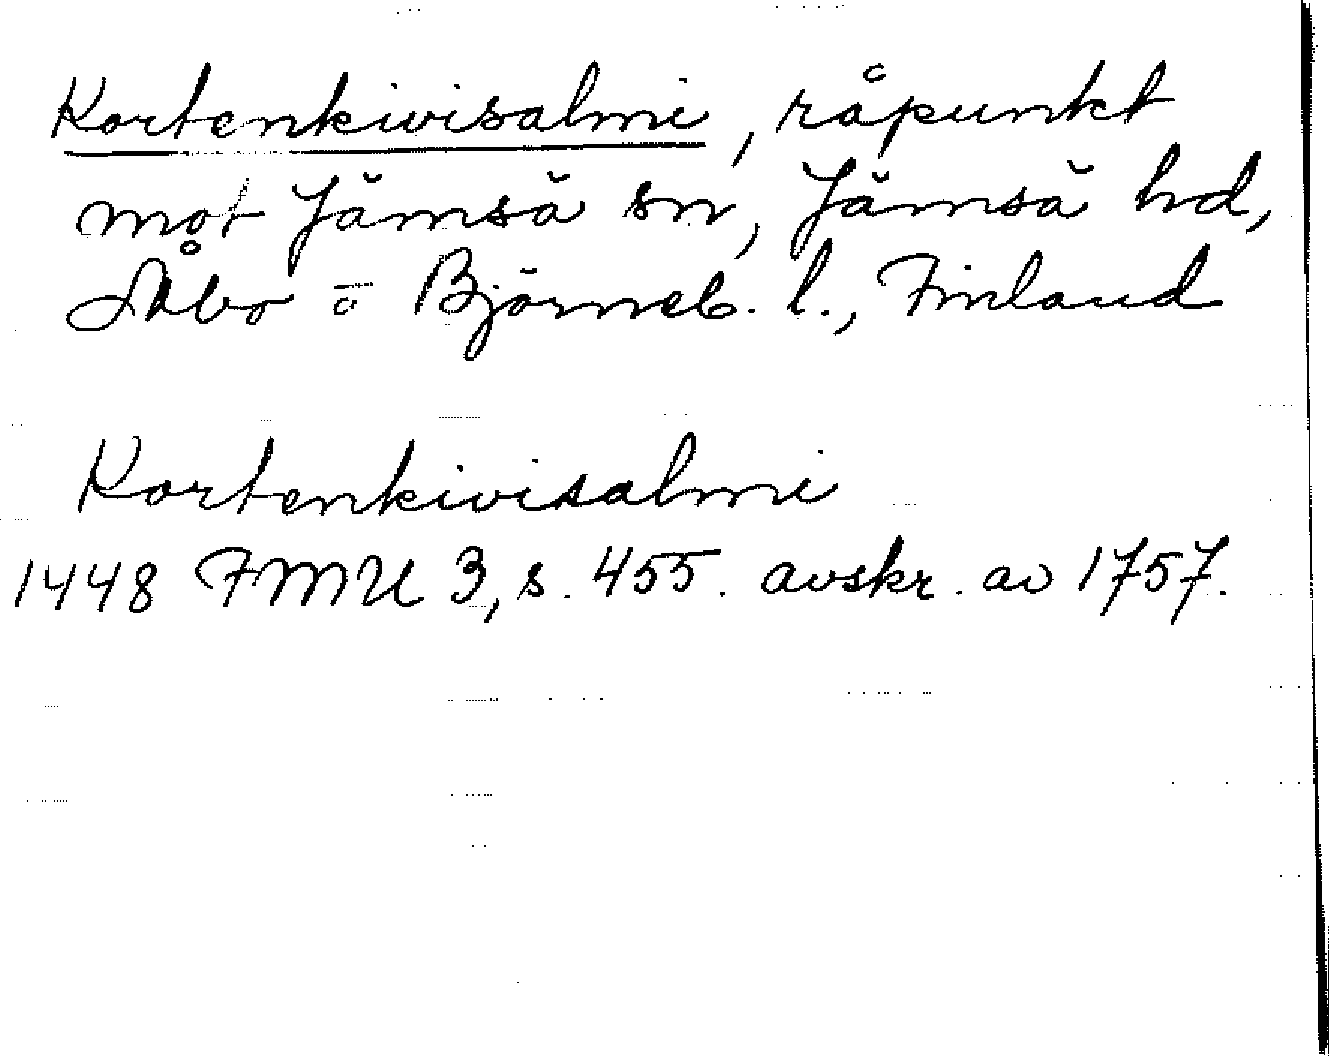 Kortenkivisalmi, råpunkt
mot Jämsä sn, Jämsä hd,
Åbo o Björneb. l., Finland
Kortenkivisalmi
1448 FMU 3, s. 455. avskr. av 1757.